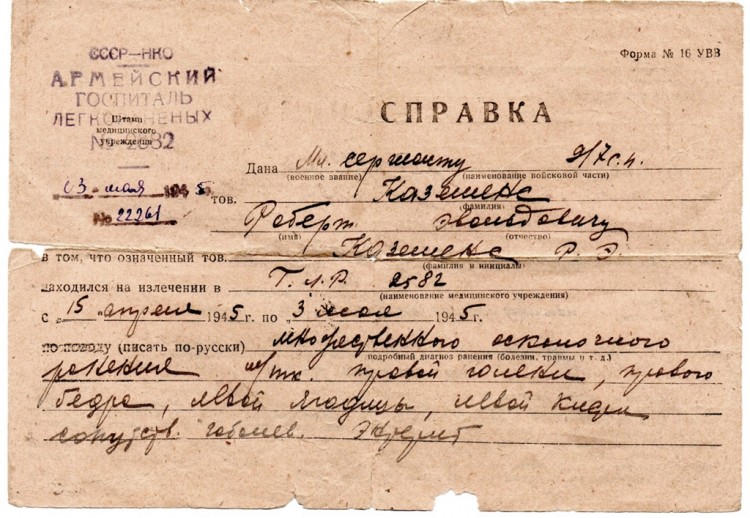 СССР—НКО
АРМЕЙСКИЙ
ГОСПИТАЛЬ
ЛЕГКО НЕНЫХ
№ 2582
Штамп
медицинского
учреждения
03 мая 1945
№ 22261
Форма № 16 УВВ
СПРАВКА
Дана Мл. сержанту 917 с.п.
(военное звание) (наименование войсковой части)
тов. Каземенс
(фамилия)
Роберт Эвольдовичу
(имя) (отчество)
в том, что означенный тов. Каземенс Р. Э.
(фамилия и инициалы)
находился на излечении в Г.Л.Р. 2582
(наименование медицинского учреждения)
с „15 „ апреля 1945 г. по 3 мая 1945 г.
по поводу (писать по-русски) множественного осколочного
подробный диагноз ранения (болезни, травмы и т. д.)
ранения м/тк. правой голени, правого
бедра, левой ягодицы, левой кисти
сопутств. заболев. Энтерит